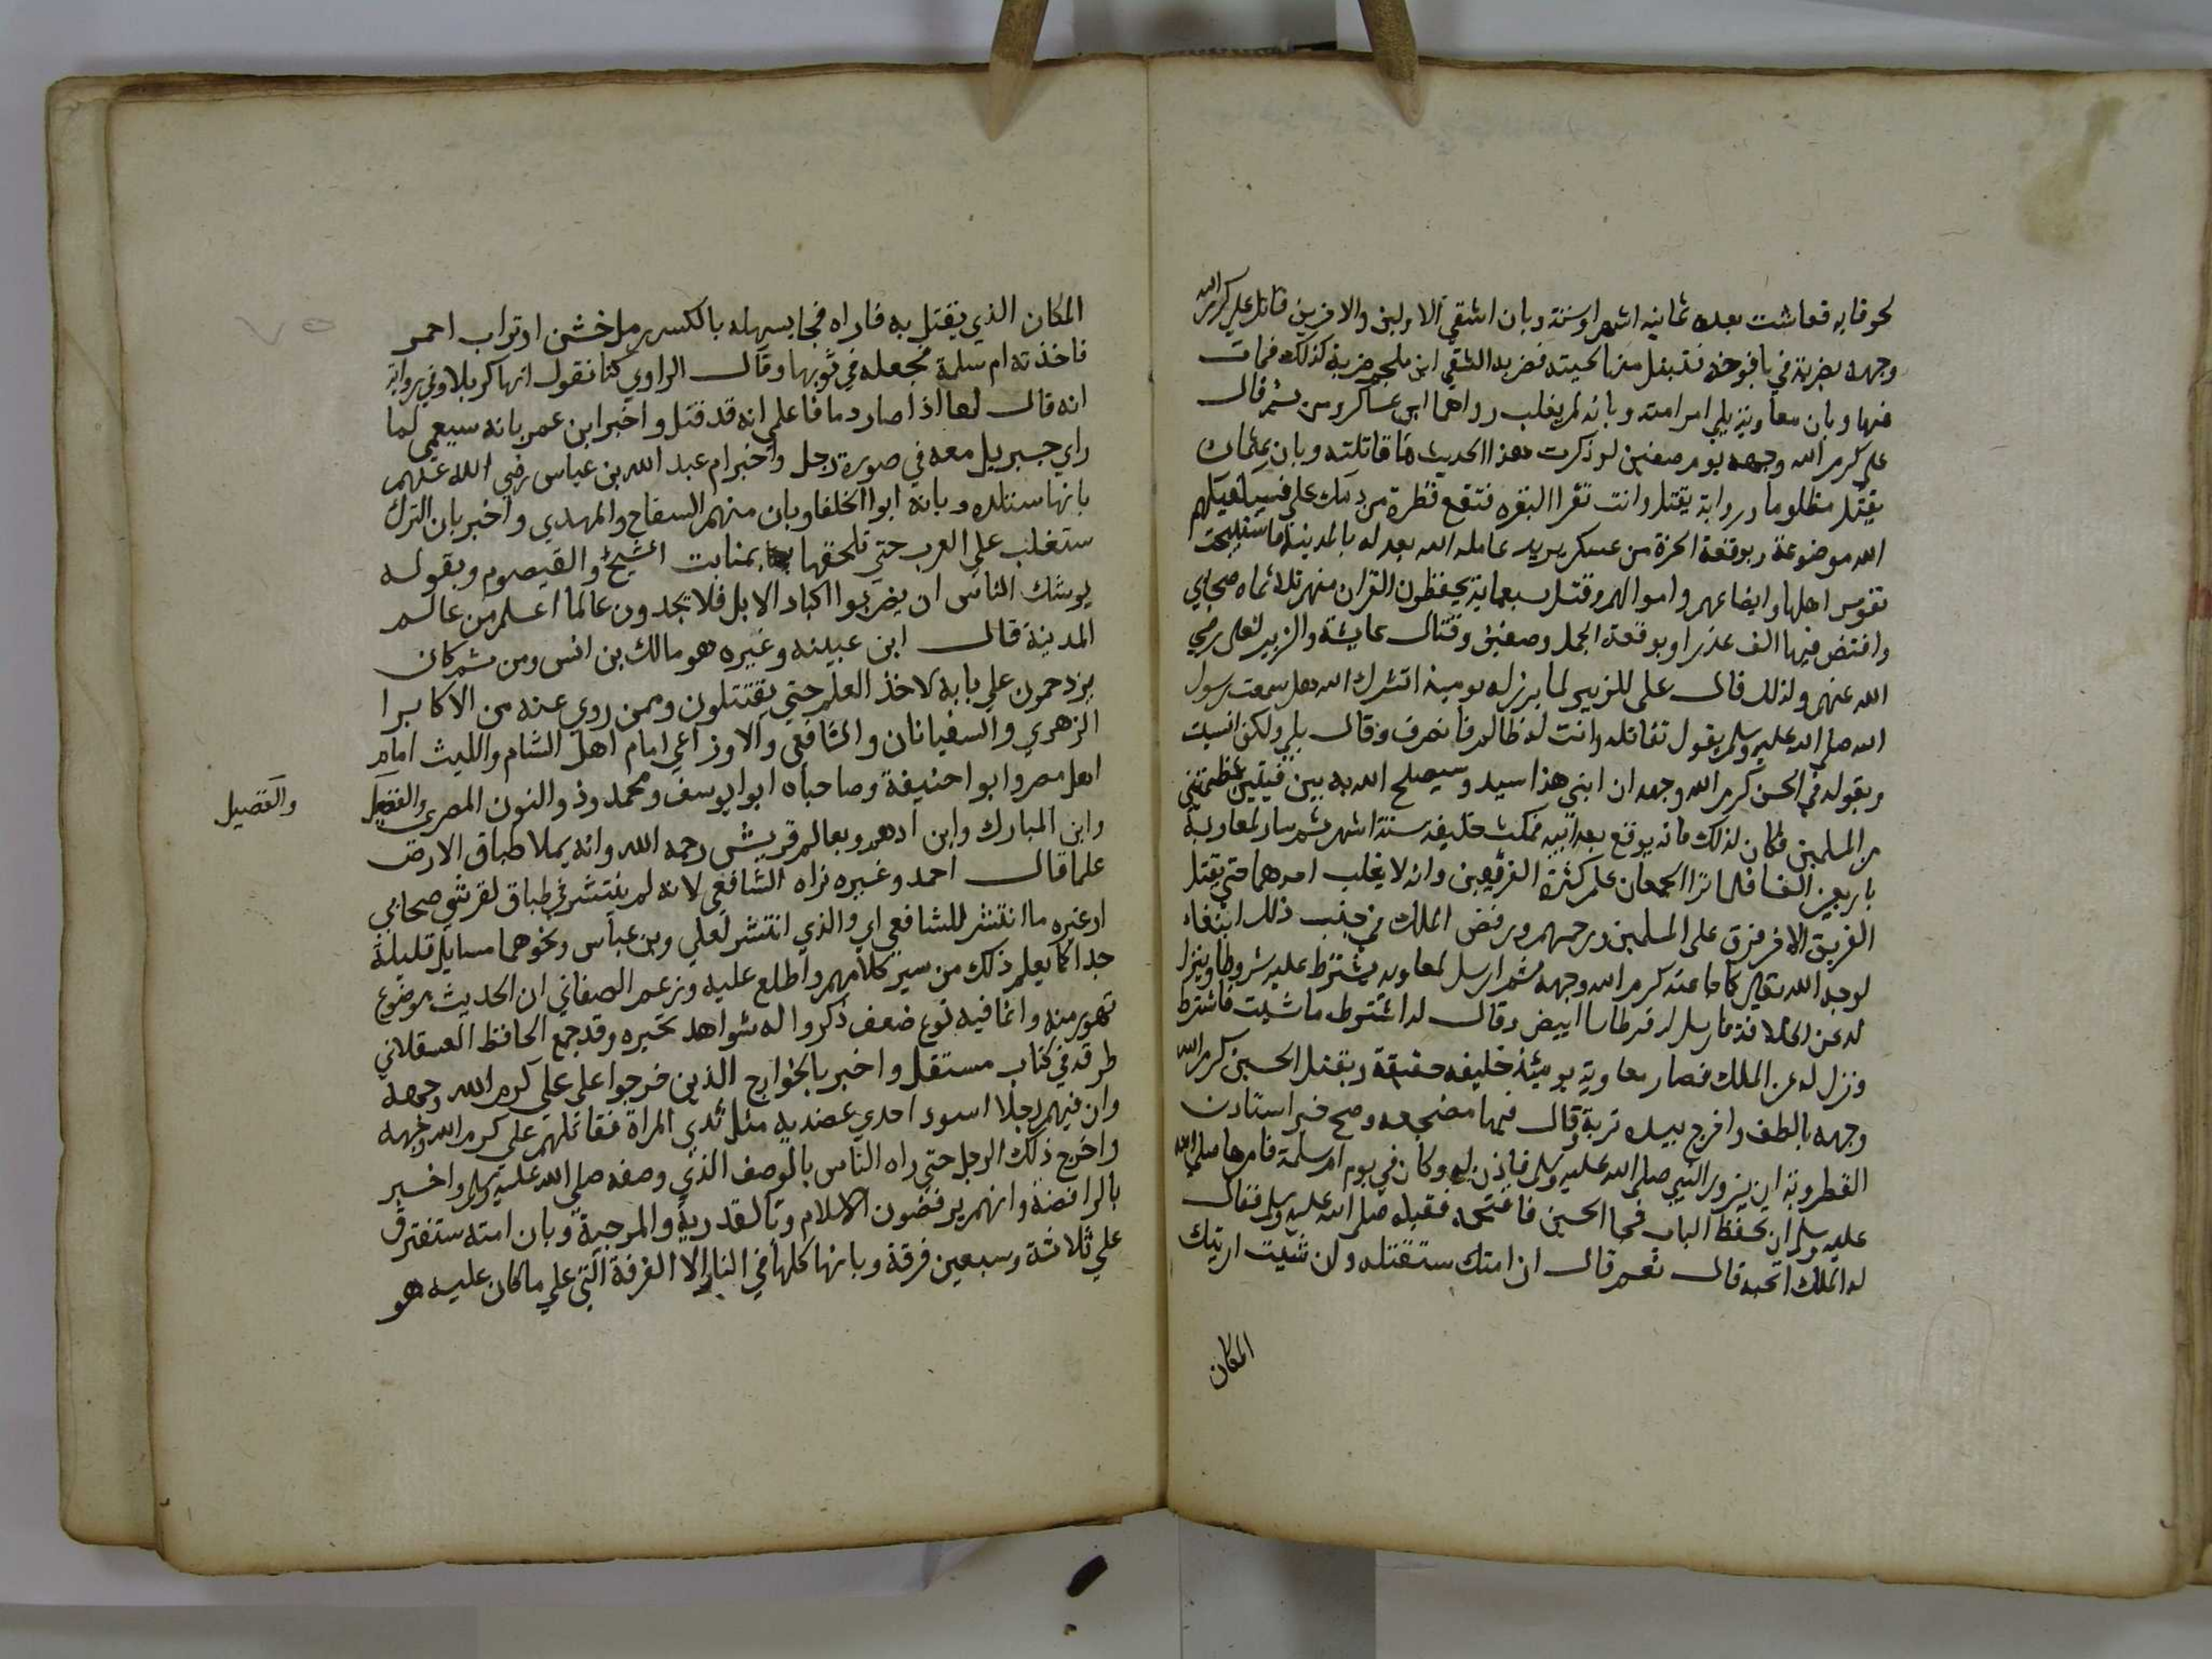 لحوقا به فعاشت بعده ثمانية اشهر او ستة وبان اشقي الاولين والاخرين قاتل علي كرم الله
وجهه بضربة في يافوخه فتبتل منها لحيته فضربه الشقي ابن ملجم ضربة كذلك فمات
منها وبان معاوية يلي امر امته وبانه لم يغلب رواهما ابن عساكر ومن ثم قال
علي كرم الله وجهه يوم صفين لو ذكرت هذا الحديث ما قاتلته وبان عثمان
يقتل مظلوما ورواية يقتل وانت تقرا البقره فتقع قطرة من دمك علي فسيكفيكهم
الله موضوعة وبوقعة الحرة من عسكر يزيد عامله الله بعدله بالمدينة فاستبيحت
نفوس اهلها وابضاعهم واموالهم وقتل سبعماية يحفظون القران منهم ثلاثماه صحابي
وافتض فيها الف عذرا وبوقعة الجمل وصفين وقتال عايشة والزبير لعلي رضي
الله عنهم ولذلك قال علي للزبير لما برز له يوميذ انشدك الله هل سمعت رسول
الله صلي الله عليه وسلم يقول تقاتله وانت له ظالم فانصرف وقال بلي ولكن انسيت
وبقوله في الحسن كرم الله وجهه ان ابني هذا سيد وسيصلح الله به بين فيتين عظيمتين
من المسلمين فكان لذلك فانه بويع بعد ابيه فمكث خليفة ستة اشهر ثم سار لمعاوية
باربعين الفا فلما تراا الجمعان علم كثرة الفريقين وانه لا يغلب احدهما حتي يقتل
الفريق الاخر فرق علي المسلمين ورحمهم ورفض الملك في جنب ذلك ابتغاء
لوجه الله تعالي كما جا عنه كرم الله وجهه ثم ارسل لمعاوية يشترط عليه شروطا وينزل
له عن الخلافة فارسل له قرطاسا ابيض وقال له اشترط ما شيت فاشترط
ونزل له عن الملك فصار معاوية يوميذ خليفة حقيقة وبقتل الحسين كرم الله
وجهه بالطف واخرج بيده تربة وقال فيها مضجعه وصح خبر استاذن
القطر ربه ان يزور النبي صلي الله عليه وسلم فاذن له وكان في يوم ام سلمة فامرها صلي الله
عليه وسلم ان تحفظ الباب فجا الحسين فاقتحمه فقبله صلي الله عليه وسلم فقال
له الملك اتحبه قال نعم قال ان امتك ستقتله وان شيت اريتك
المكان
المكان الذي يقتل به فاراه فجا بسهلة بالكسر رمل خشن او تراب احمر
فاخذته ام سلمة فجعله في ثوبها وقال الراوي كنا نقول انها كربلا وفي رواية
انه قال لها اذا صار دما فاعلمي انه قد قتل واخبر ابن عمر بانه سيعمي لما
راي جبريل معه في صورة رجل واخبر ام عبد الله بن عباس رضي الله عنهم
بانها ستلده وبانه ابوا الخلفا وبان منهم السفاح والمهدي واخبر بان الترك
ستغلب علي العرب حتي تلحقها بمنابت الشيح والقيصوم وبقوله
يوشك الناس ان يضربوا اكباد الابل فلا يجدون عالما اعلم من عالم
المدينة قال ابن عيينه وغيره هو مالك بن انس ومن ثم كان
يزدحمون علي بابه لاخذ العلم حتي يقتتلون وممن روي عنه من الاكابرا
الزهري والسفيانان والشافعي والاوزاعي امام اهل الشام والليث امام
اهل مصر وابو احنيفة وصاحباه ابو ايوسف ومحمد وذو النون المصري والفضيل
والفضيل
وابن المبارك وابن ادهم وبعالم قريش رحمه الله وانه يملا طباق الارض
علما قال احمد وغيره نراه الشافعي لانه لم ينتشر في طباق لقرشي صحابي
او غيره ما انتشر للشافعي اي والذي انتشر لعلي وبن عباس ونحوهما مسايل قليلة
جدا كما يعلم ذلك من سير كلامهم واطلع عليه وزعم الصغاني ان الحديث موضوع
تهور منه وانما فيه نوع ضعف ذكروا له شواهد تجبره وقد جمع الحافظ العسقلاني
طرقه في كتاب مستقل واخبر بالخوارج الذين خرجوا علي علي كرم الله وجهه
وان فيهم رجلا اسود احدي عضديه مثل ثدي المراة فقاتلهم علي كرم الله وجهه
واخرج ذلك الرجل حتي راه الناس بالوصف الذي وصفه صلي الله عليه وسلم واخبر
بالرافضة وانهم يرفضون الاسلام وبالقدرية والمرجية وبان امته ستفترق
علي ثلاثة وسبعين فرقة وبانها كلها في النار الا الفرقة التي علي ما كان عليه هو